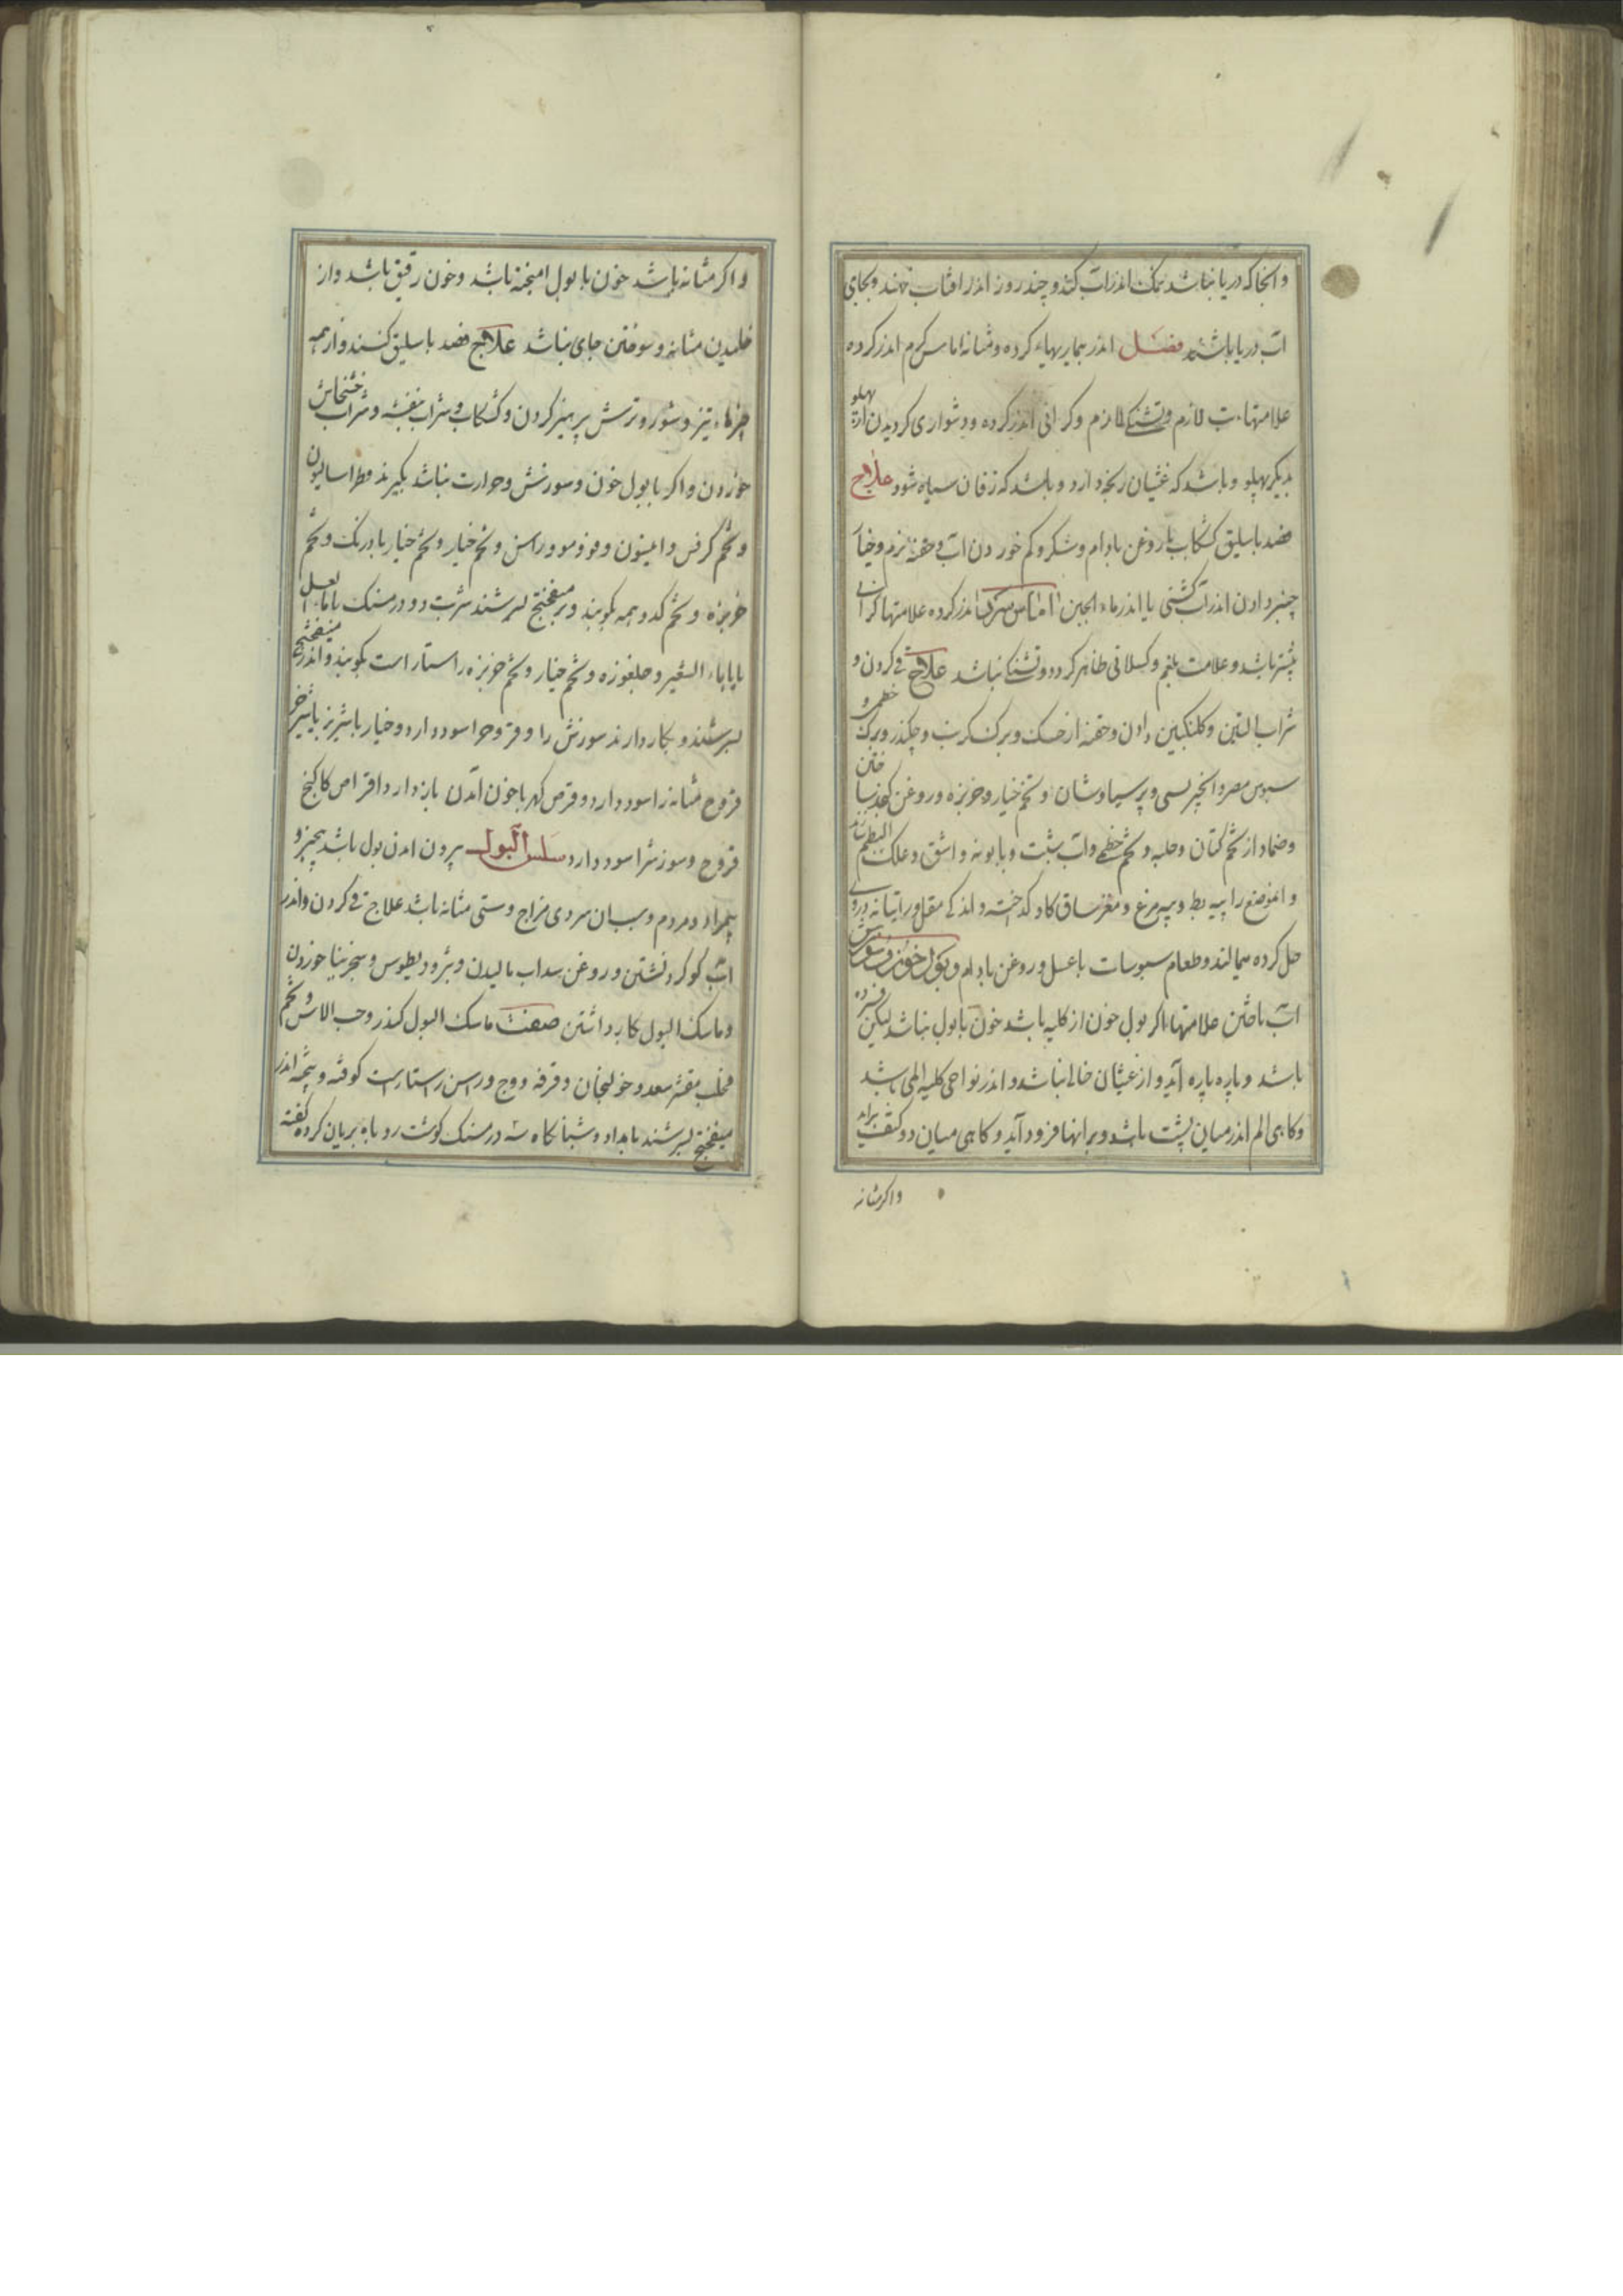 وانجا که دریا نباشد نمک اندر آب کنند و چند روز اندر افتاب نهند و بجای
اب دریا باشد فصل اندر بیماریهاء کرده و مثانه اماس کرم اندر کرده
علامتها تب لازم و تشنکی لازم و کرانی اندر کرده و دشواری کردیدن از پهلو
بدیکر پهلو و باشد که غثیان رنجه دارد و باشد که زفان سیاه شود علاج
فصد باسلیق کشکاب با روغن بادام و شکر و کم خوردن اب و حقنه نرم و خیار
چنبر دادن اندر اب یا اندر ماء الجبن اماس سرد اندر کرده علامتها کرانی
بیشتر باشد و علامت بلغم و کسلانی ظاهر کردد و تشنکی نباشد علاج قی کردن و
شراب التین و کلنکبین دادن و حقنه از خسک و برک کرنب و چکندر و برک خطمی و
سبوس و انجیر و پرسیاوشان و تخم خیار و خربزه و روغن ساختن
وضماد از تخم کتان و حلبه و تخم خطمی و اب شبت و بابونه و اشق و علک البطم
و انموضع را پیه بط و پیه مرغ و مغز ساق کاو کداخته و اندکی مقل و راتیانه دروی
حل کرده میمالند و طعام سبوسات با عسل و روغن بادام و بول خون و سوزش
اب تاختن علامتها اکر بول خون از کلیه باشد خون با بول نباشد لیکن فسرده
باشد و پاره پاره آید و از غثیان خالی نباشد و اندر نواحی کلیه المی باشد
وکاهی الم اندر میان پشت باشد و برانها فرود آید و کاهی میان دو کتف براید
واکر مثانه
واکر مثانه باشد خون با بول امیخته باشد و خون رقیق باشد و از
خلیدن مثانه و سوختن جای نباشد علاج فصد باسلیق کنند و از همه
چیزهاء تیز و شور و ترش پرهیز کردن و کشکاب و شراب بنفشه و شراب خشخاش
خوردن واکر با بول خون و سوزش و حرارت نباشد بکیرند فطراسالیون
و تخم کرفس و انیسون و فو و مو و راسن و تخم خیار و تخم خیار بادرنک و تخم
خربزه و تخم کدو همه بکوبند و بر میفختج بسرشند شربت دو درمسنک با ماء العسل
یا با ماء الشعیر و جلغوزه و تخم خیار و تخم خربزه راستا راست بکوبند و اندر میفختج
بسرشند و بکار دارند سوزش را و قروح را سود دارد و خیار با شیر بز یا شیر خر
قروح مثانه را سود دارد و قرص کهربا خون آمدن باز دارد و اقراص کاکنج
قروح و سوزش را سود دارد سلس البول بیرون امدن بول باشد بیخبر و
بیمراد مردم و سبب ان سردی مزاج و سستی مثانه باشد علاج قی کردن و اندر
اب کوکرد نشستن و روغن سداب مالیدن و مثرودیطوس و سجزینا خوردن
و ماسک البول کار داشتن صفت ماسک البول کندر و حب الاس و تخم
محلب مقشر سعد و خولنجان و قرفه و وج و راسن راستاراست کوفته و بیخته اندر
میفختج بسرشند بامداد و شبانکاه سه درمسنک کوشت روباه بریان کرده کفته